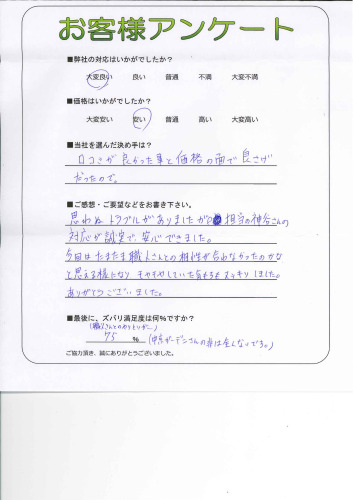 お客様アンケート
■弊社の対応はいかがでしたか?
大変良い 良い 普通 不満 大変不満
■価格はいかがでしたか?
大変安い 安い 普通 高い 大変高い
■当社を選んだ決め手は?
口コミが良かった事と価格の面で良さげ
だったので。
■ご感想・ご要望などをお書き下さい。
思わぬトラブルがありましたが 担当の神谷さんの
対応が誠実で、安心できました。
今回はたまたま職人さんとの相性が合わなかったのかな
と思える様になり モヤモヤしていた気持ちもスッキリしました。
ありがとうございました。
■最後に、ズバリ満足度は何%ですか?
(職人さんとのやりとりが…)
75 %
ガーデンさんの非は全くないです。)
ご協力頂き、誠にありがとうございました。